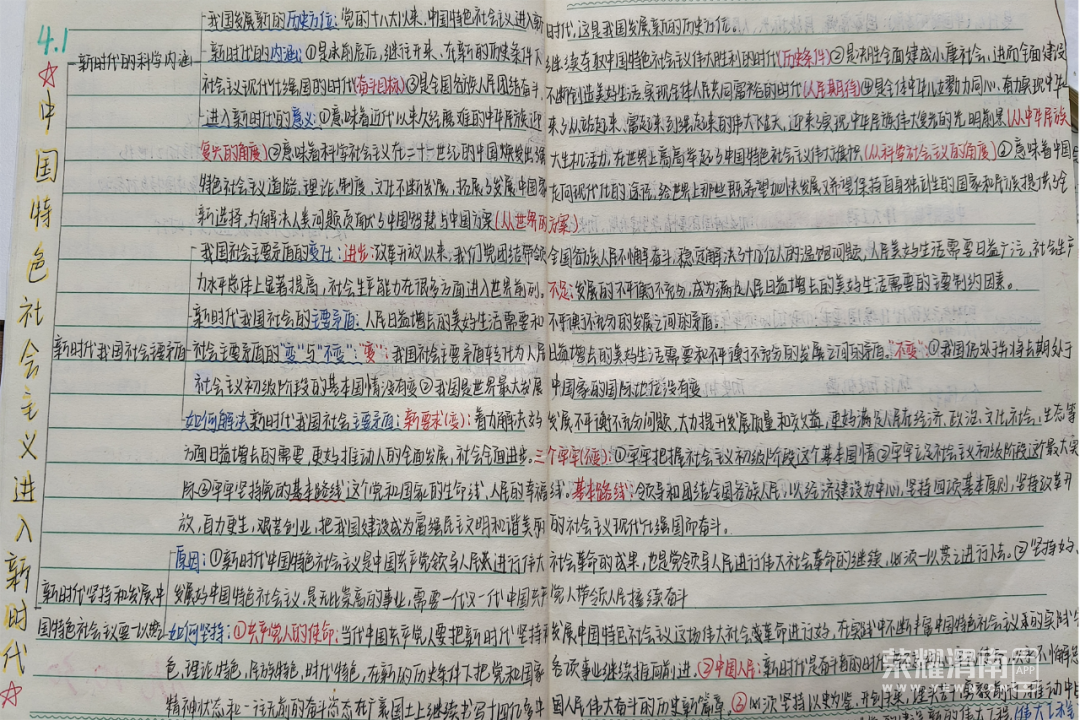 4.1
中国特色社会主义进入新时代
我国发展新的历史方位:党的十八大以来,中国特色社会主义进入新时代,这是我国发展新的历史方位。
新时代的科学内涵
新时代的内涵:①是承前启后、继往开来、在新的历史条件下继续夺取中国特色社会主义伟大胜利的时代(历史条件)②是决胜全面建成小康社会,进而全面建设
社会主义现代化强国的时代(奋斗目标)③是全国各族人民团结奋斗、不断创造美好生活、实现全体人民共同富裕的时代(人民期待)④是全体中华儿女勠力同心、奋力实现中华
进入新时代的意义:①意味着近代以来久经磨难的中华民族迎来了从站起来、富起来到强起来的伟大飞跃,迎来了实现中华民族伟大复兴的光明前景(从中华民族
复兴的角度)②意味着科学社会主义在二十一世纪的中国焕发出强大生机活力,在世界上高高举起了中国特色社会主义伟大旗帜(从科学社会主义的角度)③意味着中国
特色社会主义道路、理论、制度、文化不断发展,拓展了发展中国家走向现代化的途径,给世界上那些既希望加快发展又希望保持自身独立性的国家和民族提供了全
新选择,为解决人类问题贡献了中国智慧与中国方案(从世界的方案)
我国社会主要矛盾的变化:进步:改革开放以来,我们党团结带领全国各族人民不懈奋斗,稳定解决了十几亿人的温饱问题,人民美好生活需要日益广泛,社会生产
力水平总体上显著提高,社会生产能力在很多方面进入世界前列。不足:发展的不平衡不充分,成为满足人民日益增长的美好生活需要的主要制约因素。
新时代我国社会的主要矛盾:人民日益增长的美好生活需要和不平衡不充分的发展之间的矛盾。
新时代我国社会主要矛盾
社会主要矛盾的"变"与"不变":"变":我国社会主要矛盾转化为人民日益增长的美好生活需要和不平衡不充分的发展之间的矛盾。"不变":①我国仍处于并将长期处于
社会主义初级阶段的基本国情没有变②我国是世界最大发展中国家的国际地位没有变
如何解决新时代我国社会主要矛盾:新要求(变):着力解决好发展不平衡不充分问题,大力提升发展质量和效益,更好满足人民在经济、政治、文化、社会、生态等
方面日益增长的需要,更好推动人的全面发展、社会全面进步。三个牢牢(不变):①牢牢把握社会主义初级阶段这个基本国情②牢牢立足社会主义初级阶段这个最大实
际③牢牢坚持党的基本路线这个党和国家的生命线、人民的幸福线。基本路线:领导和团结全国各族人民,以经济建设为中心,坚持四项基本原则,坚持改革开
放,自力更生,艰苦创业,把我国建设成为富强民主文明和谐美丽的社会主义现代化强国而奋斗。
原因:①新时代中国特色社会主义是中国共产党领导人民进行伟大社会革命的成果,也是党领导人民进行伟大社会革命的继续,必须一以贯之进行下去。②坚持好、
新时代坚持和发展中国特色社会主义要一以贯之
发展好中国特色社会主义,是无比崇高的事业,需要一代又一代中国共产党人带领人民接续奋斗
如何坚持:①共产党人的使命:当代中国共产党人要把新时代坚持和发展中国特色社会主义这场伟大社会革命进行好,在实践中不断丰富中国特色社会主义的实践特
色、理论特色、民族特色、时代特色,在新的历史条件下把党和国家各项事业继续推向前进。②中国人民:新时代是奋斗者的时代,
精神状态和一往无前的奋斗姿态在广袤国土上继续书写十四亿多中国人民伟大奋斗的历史新篇章。③必须坚持以史为鉴、开创未来,
荣耀渭南网
APP